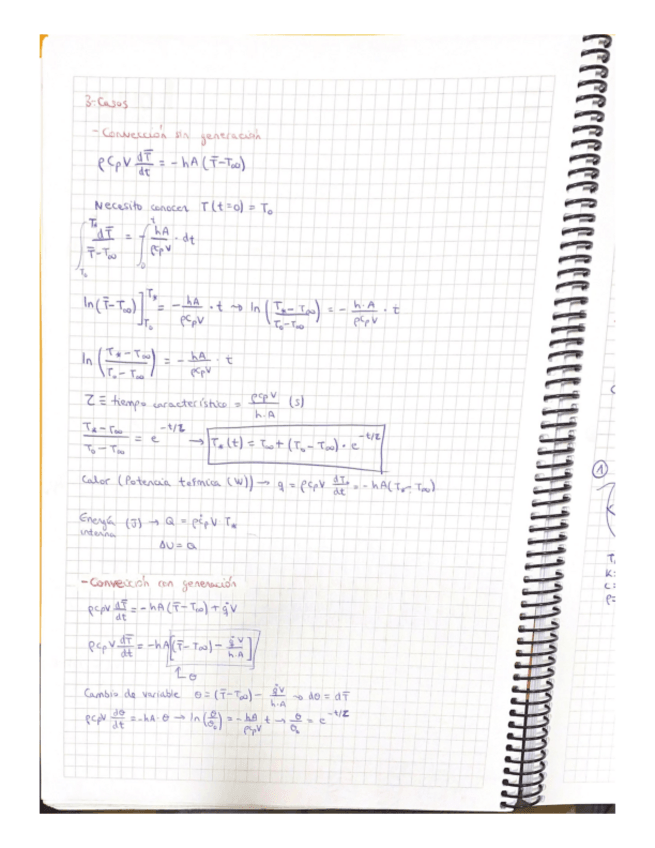 3-Casos
- Convección sin generación
ρCpV dT̄/dt = - hA (T̄-T∞)
Necesito conocer T(t=0) = T₀
∫_{T₀}^{T*} dT̄/(T̄-T∞) = -∫₀^t hA/(ρcpV) · dt
ln(T̄-T∞)]_{T₀}^{T*} = - hA/(ρCpV) · t → ln((T*-T∞)/(T₀-T∞)) = - h·A/(ρCpV) · t
ln((T*-T∞)/(T₀-T∞)) = - hA/(ρCpV) · t
Z ≡ tiempo característico = ρcpV/(h·A) (s)
(T*-T∞)/(T₀-T∞) = e^{-t/Z} → T*(t) = T∞ + (T₀-T∞) · e^{-t/Z}
Calor (Potencia térmica (W)) → q = ρcpV dT*/dt = - hA(T*-T∞)
Energía (J) → Q = ρcpV T*
interna
ΔU = Q
- Convección con generación
ρcpV dT̄/dt = - hA(T̄-T∞) + q̇V
ρcpV dT̄/dt = - hA[(T̄-T∞) - q̇V/(h·A)]
↳ θ
Cambio de variable θ = (T̄-T∞) - q̇V/(h·A) → dθ = dT̄
ρcpV dθ/dt = -hA·θ → ln(θ/θ₀) = - hA/(ρcpV) t → θ/θ₀ = e^{-t/Z}
①
K:
c:
ρ=